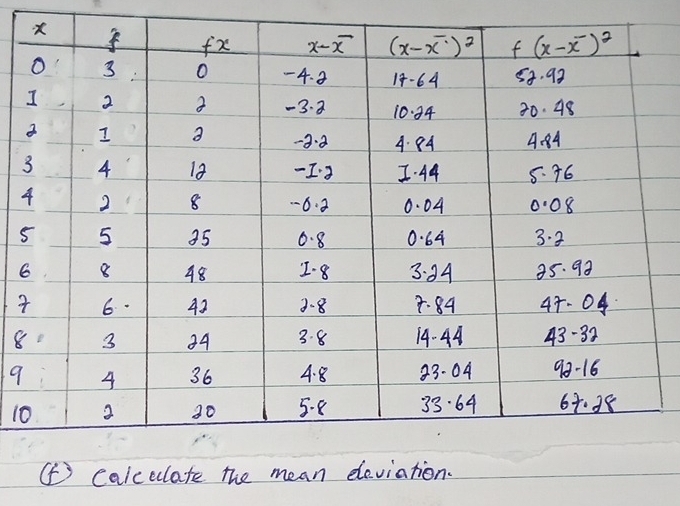 x f fx x-x̄ (x-x̄)² f (x-x̄)²
0 3 0 -4.2 17.64 52.92
1 2 2 -3.2 10.24 20.48
2 1 2 -2.2 4.84 4.84
3 4 12 -1.2 1.44 5.76
4 2 8 -0.2 0.04 0.08
5 5 25 0.8 0.64 3.2
6 8 48 1.8 3.24 25.92
7 6 42 2.8 7.84 47.04
8 3 24 3.8 14.44 43.32
9 4 36 4.8 23.04 92.16
10 2 20 5.8 33.64 67.28
(f) calculate the mean deviation.